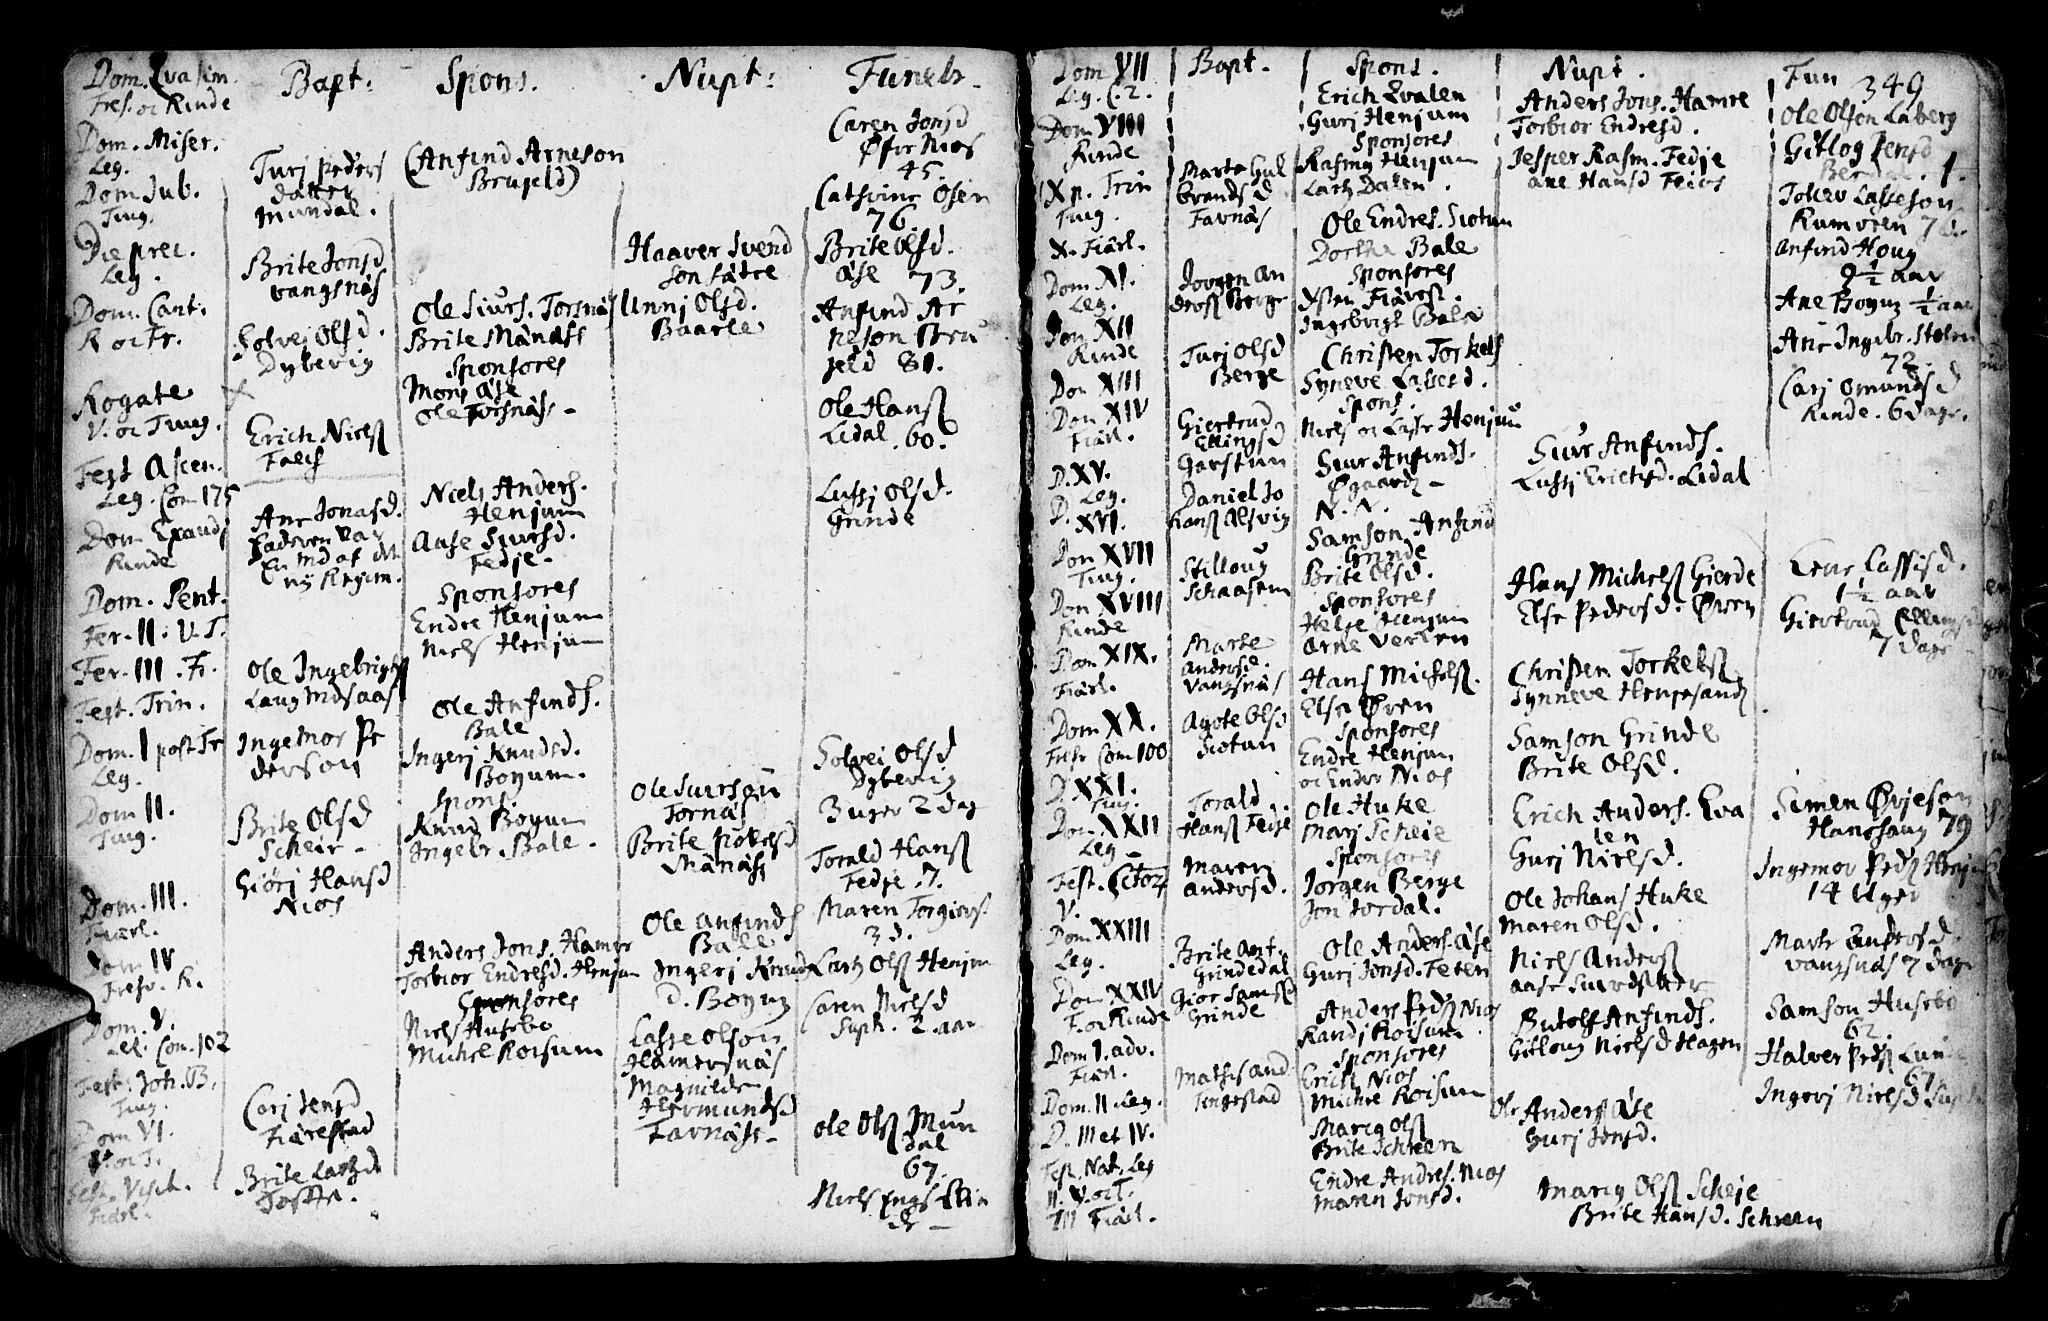 Dom. Qvasim.
Fres. oc Rinde
Dom. Miser.
Leg.
Dom. Jub.
Tiug.
Die prec.
Leg.
Dom. Cant.
R oc Fr.
Rogate
V. oc Tiug.
Fest Ascen.
Leg. Com 175
Dom Exaudj
Rinde
Dom. Pent.
Fer. II. V. T.
Fer. III. Fr.
Fest. Trin.
Dom. I post Tr
Leg.
Dom II.
Tiug.
Dom. III.
Fiærl.
Dom IV
Fresv. R.
Dom. V.
Lek: Com. 102
Fest. Joh. B.
Tiug.
Dom VI.
Fest. Visit.
Fiærl.
Bapt:
Turj Peders
datter
Mundal.
Brite Jonsd
Vangsnæs
Solvej Olsd.
Dybevig
Erich Nielss
Faleg
Ane Jonasd.
Faderen var
en Md af det
nÿ Regim.
Ole Ingebrigtss
Laugmdsaas
Ingemor Pe
derson
Brite Olsd
Scheie
Giörj Hansd
Nios
Carj Jensd
Fiærestad
Brite Larsd.
Spons.
(Anfind Arneson
Brugeld)
Ole Siurs. Tornæs
Brite Månæss
Sponsores
Mons Åse
Ole Tornæss
Niels Anders.
Henjum
Aase Siursd.
Fedje.
Sponsores
Endre Henjum
Niels Henjum
Ole Anfinds.
Bale
Ingerj Knudsd.
Boyum.
Spons.
Knud Boyum
Ingebr. Bale.
Anders Jons. Hamre
Torbior Endresd. Henjum
Sponsores
Niels Husebo
Michel Roisum
Nupt:
Haaver Svend
son Sætre
Unnj Olsd.
Baarle
Ole Siursøn
Tornæs
Brite
Månæss
Ole Anfinds
Bale
Ingerj Knuds
d. Boyum
Lasse Olson
Hamersnæs
Magnilde
Hermundsd
Farnæss
Funebr.
Caren Jonsd
Øfre Nios
45.
Cathrine Osen
76.
Brite Olsd.
Åse 73.
Anfind Ar
neson Bru
geld 81.
Ole Hanss
Lidal. 60.
Lussj Olsd.
Grinde
Solvei Olsd
Dybevig
3 uger 2 dag
Torald Hanss
Fedje. 7.
Maren Torgiers.
3 d.
Lars Olss Henjum
Caren Nielsd
Suph. 2 aar
Ole Olss Mun
dal
67.
Dom VII
Leg. C. 2.
Dom VIII
Rinde
IX p. Trin
Tiug.
X. Fiærl.
Dom. XI.
Leg.
Dom XII
Rinde
Dom XIII
Dom. XIV
Fiærl.
D. XV.
D. Leg.
XVI.
Dom XVII
Tiug.
Dom XVIII
Rinde
Dom XIX.
Fiærl.
Dom XX.
Fresv Com 100
D. XXI.
Tiug.
Dom. XXII
Leg
V.
Dom XXIII
Leg.
Dom XXIV
F. oc Rinde
Dom 1. adv.
Fiærl.
Dom. II. Leg.
D. III et IV.
Fest. Nat. Leg
II. V. oc T.
III Fiærl.
Bapt.
Marte Gul
brandsd
Farnæs
Jorgen An
derss Berge
Turj Olsd
Berge
Giertrud
Ellingsd
Garstun
Daniel Jo
hanss Alsvig
Stilloug
Schaasem
Marte
Andersd.
Vangsnæs
Agote Olsd
Siotun
Torald
Hanss Fedje
Maren
Andersd.
Brite Ant.
Grindedal
Gior Samss
Grinde
Mathis And
Tingestad
Spons.
Erich Qvalen
Gurj Henjum
Sponsores
Rasmus Henjum
Lars Dalen.
Ole Endres. Siotun
Dorthe Bale
Sponsores
Østen Fiærest.
Ingebrigt Bale
Christen Torkels
Syneve Lassesd.
Spons.
Niels oc Lasse Henjum
Siur Anfinds.
Øgaard
N. N.
Samson Anfind
Grinde
Brite Olsd.
Sponsores
Helje Henjum
Arne Verken
Hans Michelss.
Else Øren
Sponsores
Endre Henjum
oc Endre Nios
Ole Huke
Marj Scheie
Sponsores
Jorgen Berge
Jon Jordal.
Ole Anders. Åse
Gurj Jonsd. Feten
Anders Pedss Nios
Randj Roisum
Sponsores
Erich Nios
Michel Roisum
Marcq Olss
Brite Schreen
Endre Andres. Nios
Maren Jonsd.
Nupt.
Anders Jons. Hamre
Torbior Endresd.
Jesper Rasm. Fedje
Ane Hansd Feios
Siur Anfinds.
Lussj Erichsd. Lidal
Hans Michelss Gierde
Else Pedersd. Øren
Christen Torkelss
Synneve Henjesand
Samson Grinde
Brite Olsd.
Erich Anders. Qva
len
Gurj Nielsd.
Ole Johans Huke
Maren Olsd.
Niels Anderss
Aase Siursdatter
Botolf Anfinds.
Gitloug Nielsd Hagen
Ole Anders Åse
Gurj Jonsd.
Marcq Olss Scheje
Brite Hansd. Schreen
Fun 349
Ole Olsen Laberg
Gitlog Jensd
1.
Tollev Lasseson
Anfind Houg
9½ aar
Ane Boyum ½ aar
Ane Ingebr. Stolen
72.
Carj Omundsd
Rinde. 6 dage.
Lene Lassisd.
1½ aar
Giertrud Ellingsd
7 dage
Simen Øvjeson
Hanssaug 79
Ingemor Pedss Henjum
14 Uger
Marte Andersd.
Vangsnæs 7 dage
Samson Husebo
62.
Halver Pedss Lunde
67
Ingerj Nielsd